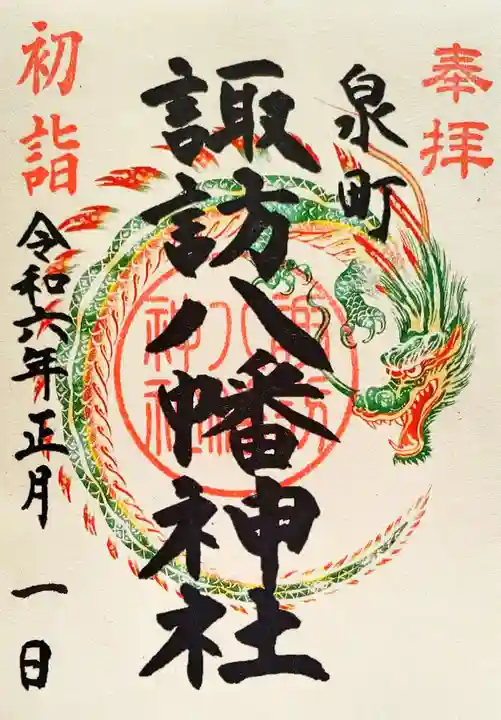 奉拝
泉町
諏訪八幡神社
諏訪
八幡
神社
初詣
令和六年正月一日